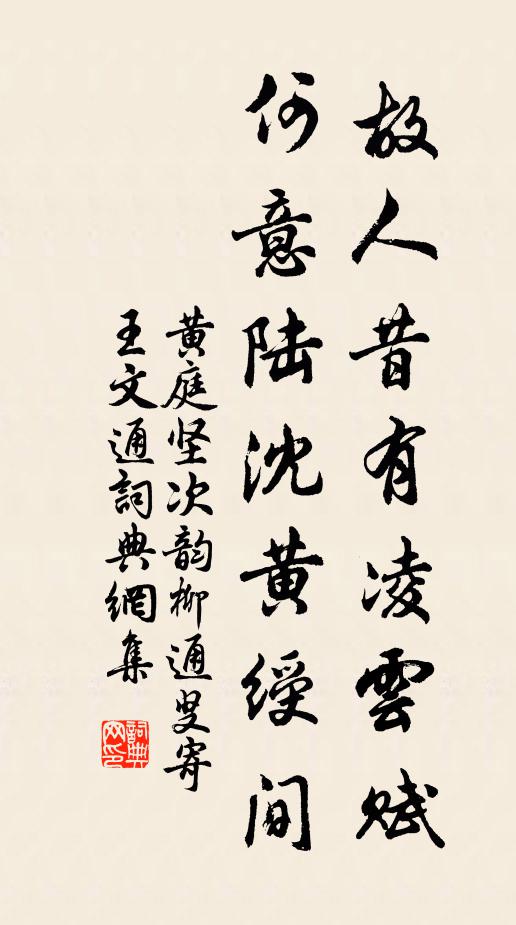 故人昔有凌雲賦
何意陆沈黄綬间
黄庭坚次韵柳通叟寄
王文通詞典網集
詞典网印